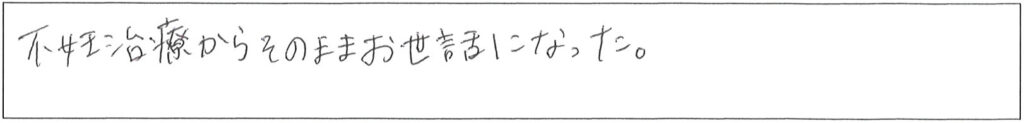 不妊治療からそのままお世話になった。